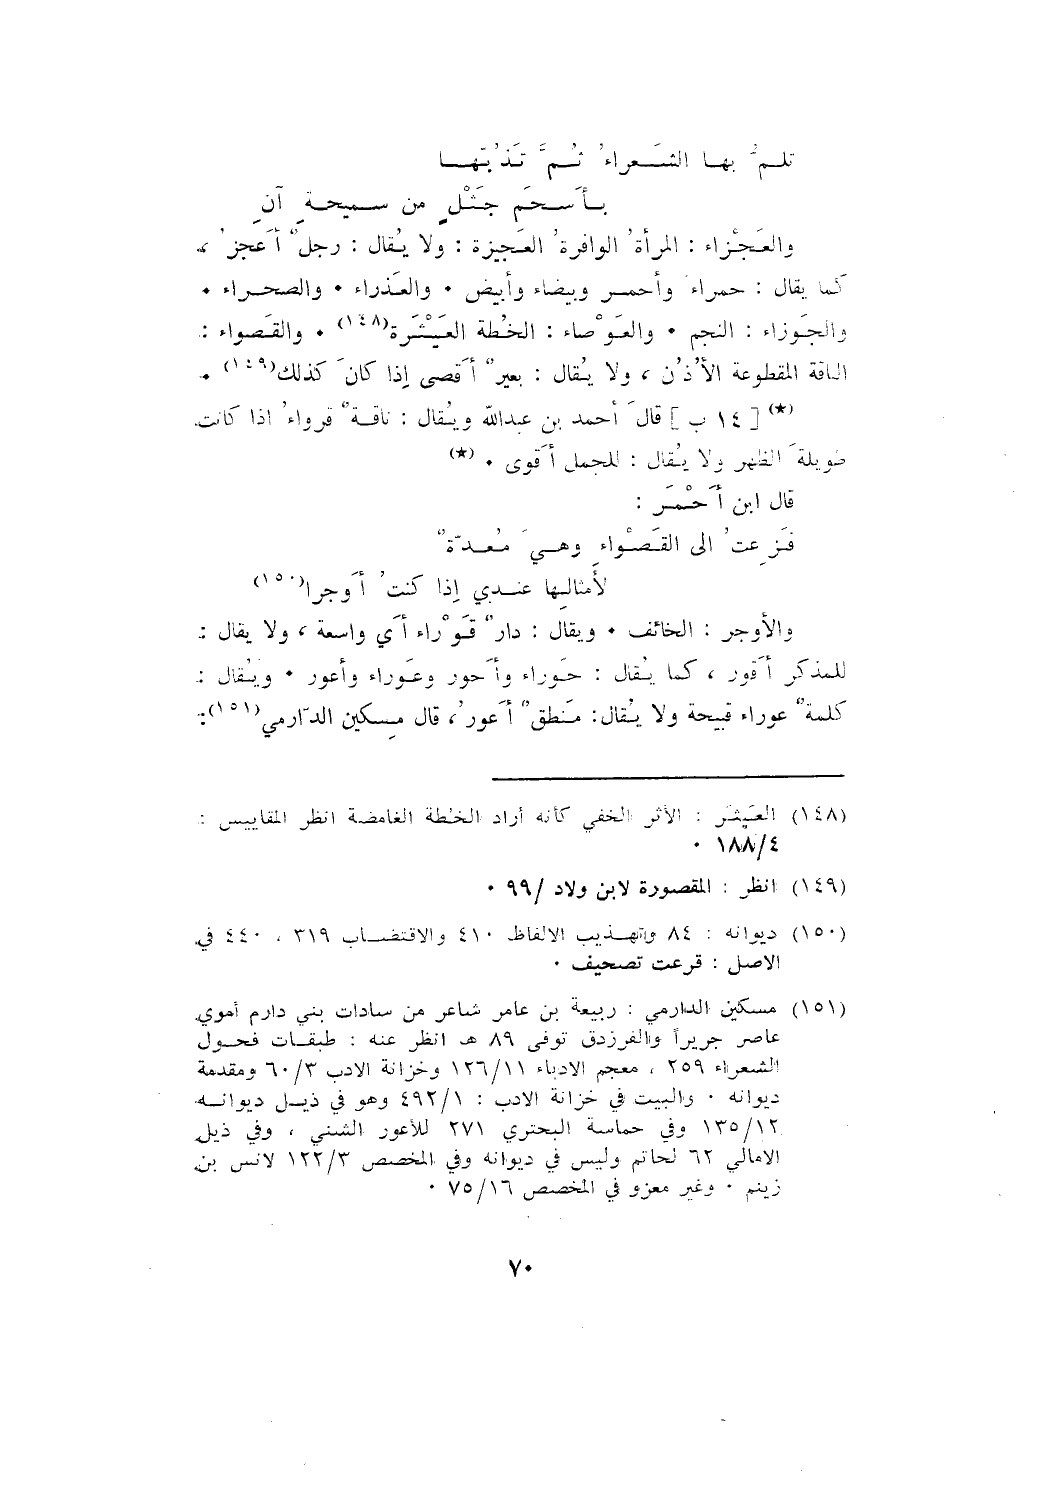 تلمُّ بها الشَعراءُ ثُمَّ تَذُبّها
بأَسحَم جَثْلٍ من سميحةٍ آنِ
والعَجْزاء : المرأةُ الوافرةُ العَجيزة : ولا يُقال : رجلٌ أَعجزُ ،
كما يقال : حمراءُ وأحمر وبيضاء وأبيض • والعَذراء • والصحراء •
والجَوزاء : النجم • والعَوْصاء : الخُطة العَيْثَرة(١٤٨) • والقَصواء :
الناقة المقطوعة الأُذُن ، ولا يُقال : بعيرٌ أَقصى إذا كانَ كذلك(١٤٩) •
(★)[ ١٤ ب ] قالَ أحمد بن عبدالله ويُقال : ناقةٌ قرواءُ اذا كانت
طويلةَ الظهر ولا يُقال : للجمل أَقوى • (★)
قال ابن أَحْمَر :
فَزِعتُ الى القَصْواءِ وهيَ مُعدّةٌ
لأَمثالِها عندي إذا كنتُ أَوجرا(١٥٠)
والأوجر : الخائف • ويقال : دارٌ قَوْراء أَي واسعة ، ولا يقال :
للمذكر أَقور ، كما يُقال : حَوراء وأَحور وعَوراء وأعور • ويُقال :
كلمةٌ عوراء قبيحة ولا يُقال: مَنطقٌ أَعورُ، قال مِسكين الدّارمي(١٥١):
(١٤٨) العَيثَر : الأثر الخفي كأنه أراد الخطة الغامضة انظر المقاييس :
٤/١٨٨ •
(١٤٩) انظر : المقصورة لابن ولاد /٩٩ •
(١٥٠) ديوانه : ٨٤ وتهذيب الالفاظ ٤١٠ والاقتضاب ٣١٩ ، ٤٤٠ في
الاصل : قرعت تصحيف •
(١٥١) مسكين الدارمي : ربيعة بن عامر شاعر من سادات بني دارم أموي
عاصر جريراً والفرزدق توفى ٨٩ هـ انظر عنه : طبقات فحول
الشعراء ٢٥٩ ، معجم الادباء ١٢٦/١١ وخزانة الادب ٦٠/٣ ومقدمة
ديوانه • والبيت في خزانة الادب : ٤٩٢/١ وهو في ذيل ديوانه
١٣٥/١٢ وفي حماسة البحتري ٢٧١ للأعور الشني ، وفي ذيل
الامالي ٦٢ لحاتم وليس في ديوانه وفي المخصص ١٢٢/٣ لانس بن
زنيم • وغير معزو في المخصص ٧٥/١٦ •
٧٠